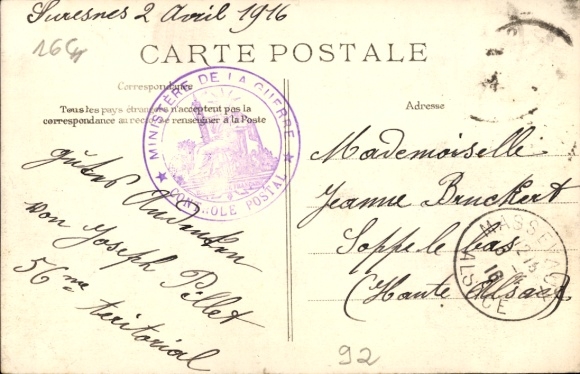 Suresnes 2 Avril 1916
16C
CARTE POSTALE
Correspondance
Tous les pays étrangers n'acceptent pas la
correspondance au recto se renseigner à la Poste
MINISTÈRE DE LA GUERRE
CONTRÔLE POSTAL
Adresse
gutes Andenken
von Joseph Pellet
56me teritorial
Mademoiselle
Jeanne Bruckert
Soppe le bas
(Haute Alsace)
MASSEVAUX
ALSACE
92